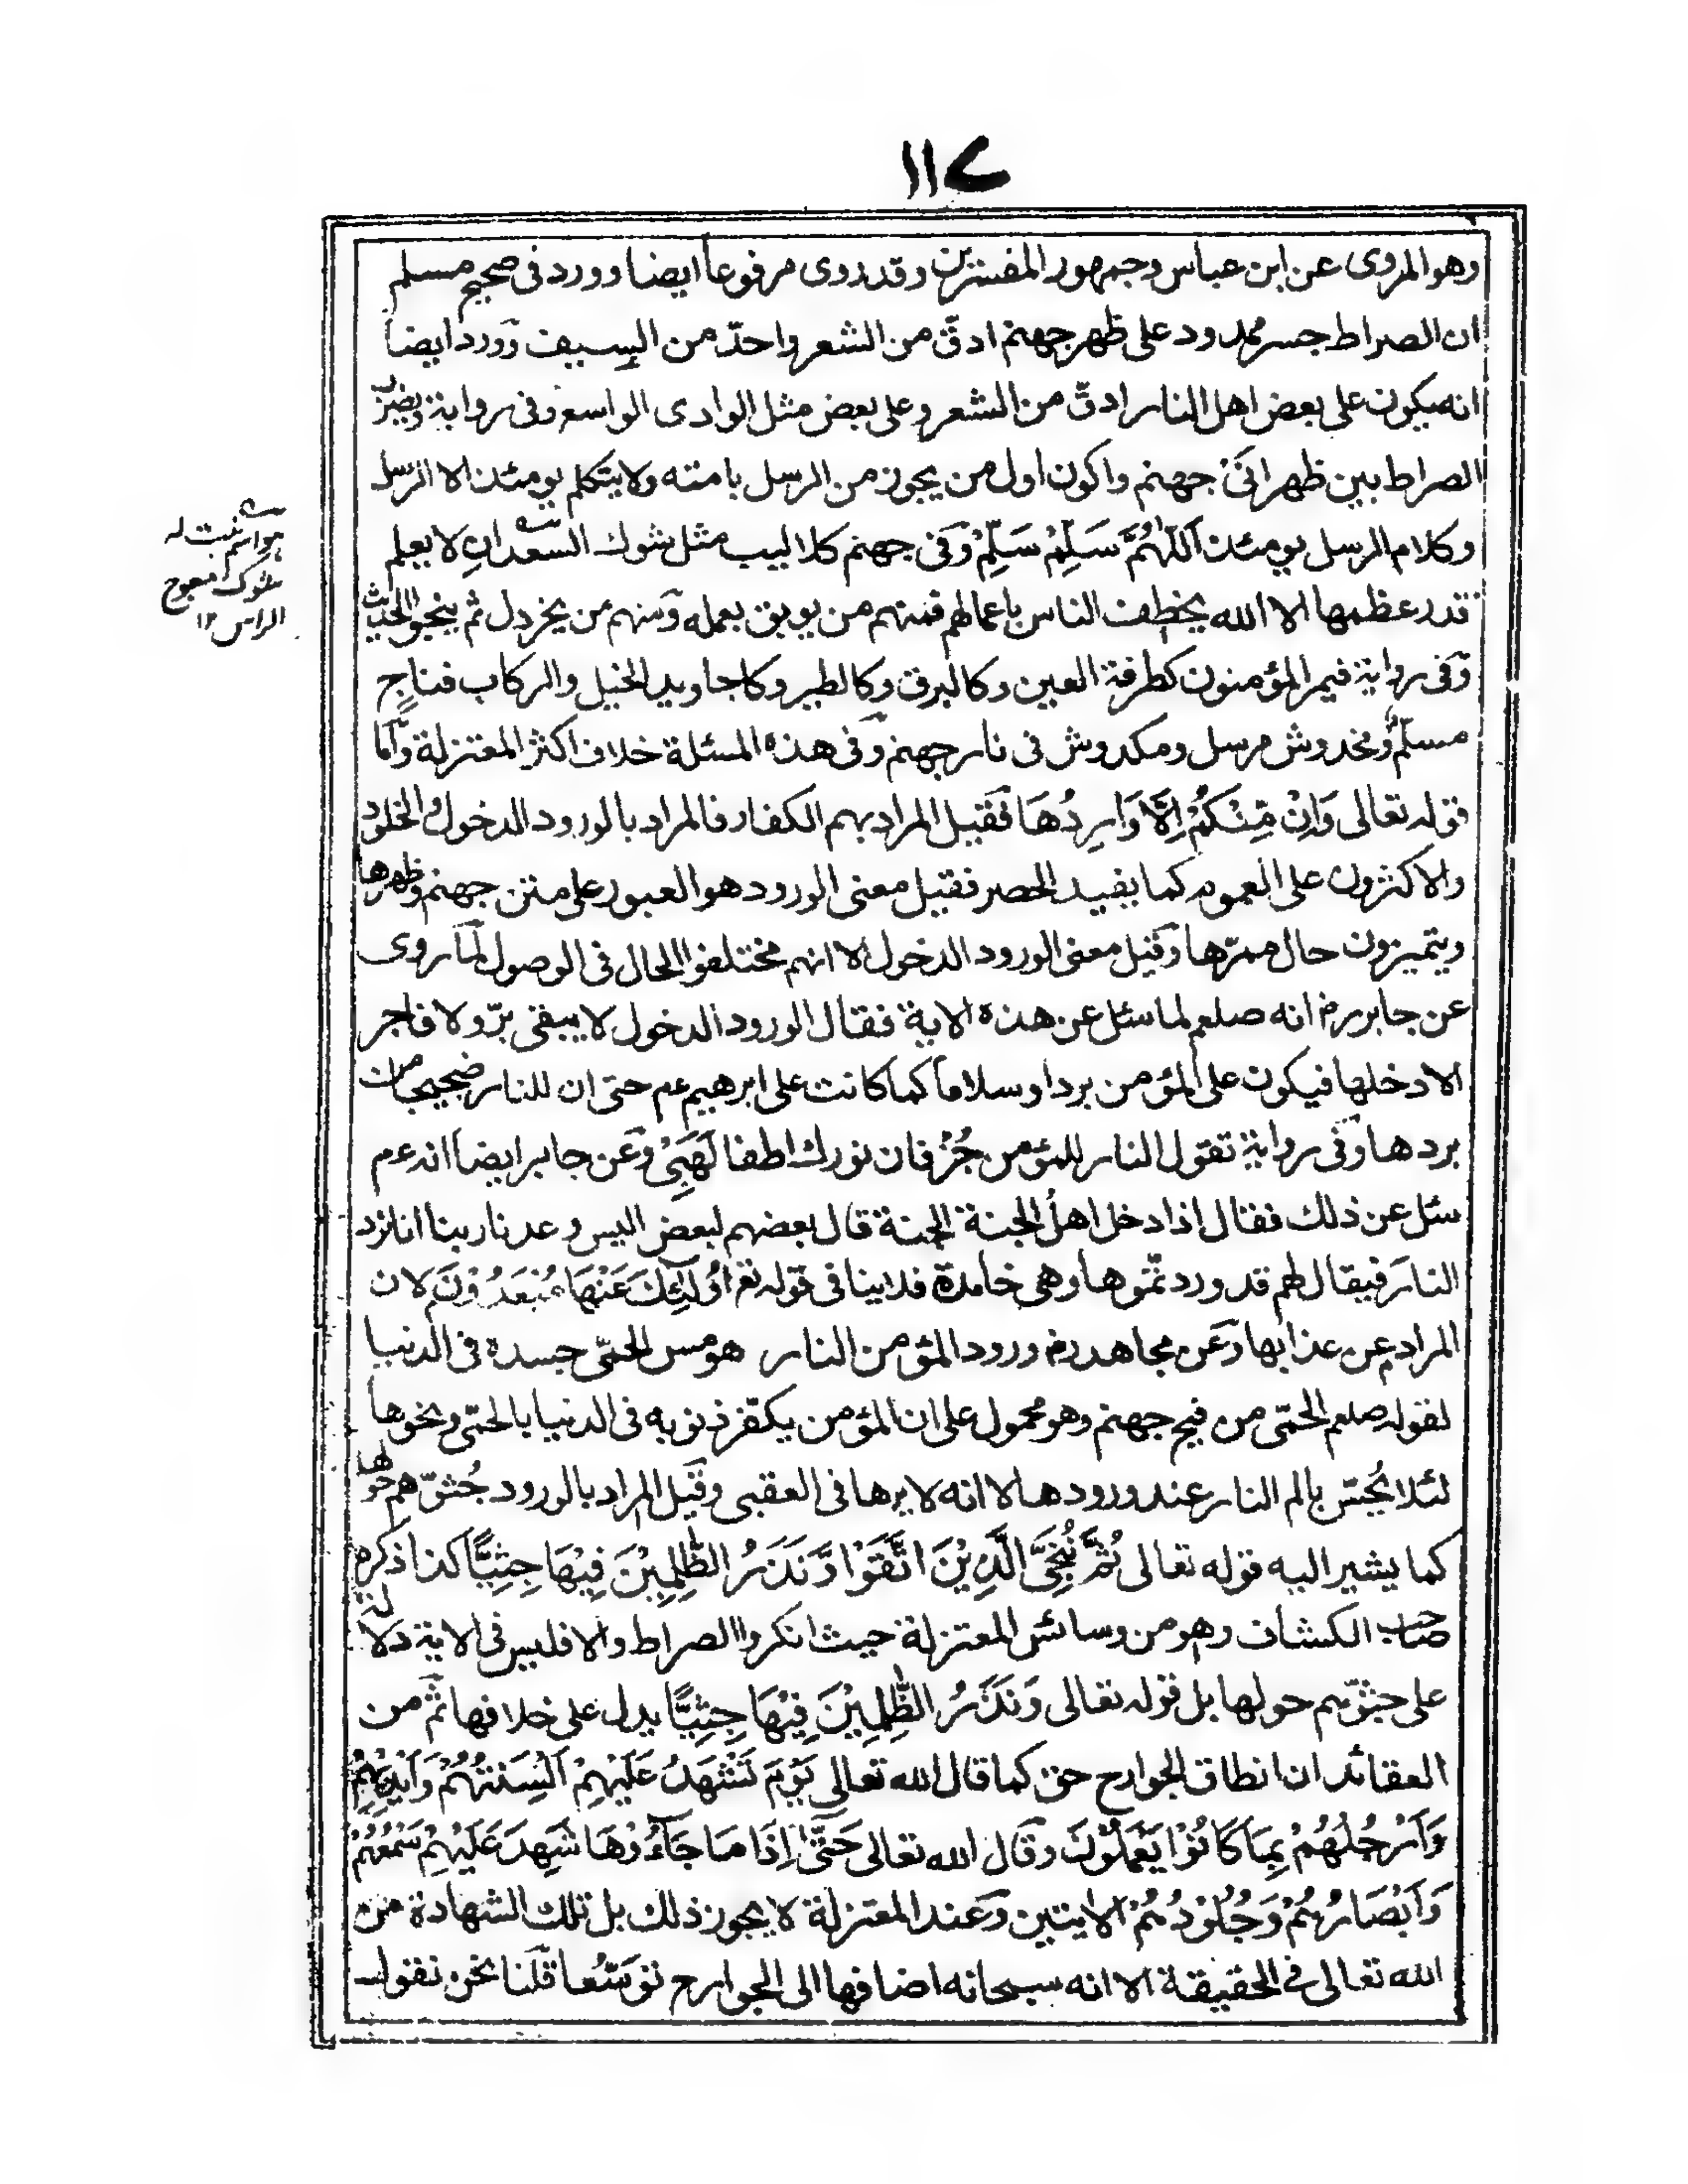 ١١٧
وهو المروى عن ابن عباس وجمهور المفسرين وقد روى مرفوعا ايضا وورد فى صحيح مسلم
ان الصراط جسر ممدود على ظهر جهنم ادقّ من الشعر واحدّ من السيف وورد ايضا
انه يكون على بعض اهل النار ادقّ من الشعر وعلى بعض مثل الوادى الواسع وفى رواية ويضرب
الصراط بين ظهرانَىْ جهنم واكون اول من يجوز من الرسل بامته ولا يتكلم يومئذ الا الرسل
وكلام الرسل يومئذ اَللّٰهُمَّ سَلِّمْ سَلِّمْ وفى جهنم كلاليب مثل شوك السعدانِ لا يعلم
قدر عظمها الا الله يخطف الناس باعمالهم فمنهم من يوبق بعمله ومنهم من يخردل ثم ينجو الحديث
وفى رواية فيمر المؤمنون كطرفة العين وكالبرق وكالطير وكاجاويد الخيل والركاب فناجٍ
مسلّمٌ ومخدوش مرسل ومكدوش فى نار جهنم وفى هذه المسئلة خلاف اكثر المعتزلة وامّا
قوله تعالى وَاِنْ مِّنْكُمْ اِلَّا وَارِدُهَا فقيل المراد بهم الكفار فالمراد بالورود الدخول والخلود
والاكثرون على العموم كما يفيد الحصر فقيل معنى الورود هو العبور على متن جهنم وظهرها
ويتميزون حال ممرّها وقيل معنى الورود الدخول الا انهم مختلفوا الحال فى الوصول لما روى
عن جابر رض انه صلعم لما سئل عن هذه الاية فقال الورود الدخول لا يبقى برّ ولا فاجر
الا دخلها فيكون على المؤمن بردا وسلاما كما كانت على ابرهيم عم حتى ان للنار ضجيجا من
بردها وفى رواية تقول النار للمؤمن جُزْ فان نورك اطفا لَهَبِىْ وعن جابر ايضا انه عم
سئل عن ذلك فقال اذا دخل اهلُ الجنة الجنة قال بعضهم لبعض اليس وعدنا ربنا انا نرد
النار فيقال لهم قد وردتّموها وهى خامدة فلا ينافى قوله تع اُولٰٓئِكَ عَنْهَا مُبْعَدُوْنَ لان
المراد عن عذابها وعن مجاهد رض ورود المؤمن النار هو مس الحمّى جسده فى الدنيا
لقوله صلعم الحمّى من فيح جهنم وهو محمول على ان المؤمن يكفّر ذنوبه فى الدنيا بالحمّى ونحوها
لئلا يُحسّ بالم النار عند ورودها لا انه لا يرها فى العقبى وقيل المراد بالورود جُثوّهم حولها
كما يشير اليه قوله تعالى ثُمَّ نُنَجِّى الَّذِيْنَ اتَّقَوْا وَّنَذَرُ الظّٰلِمِيْنَ فِيْهَا جِثِيًّا كذا ذكره
صاحب الكشاف وهو من وسائس المعتزلة حيث انكروا الصراط والا فليس فى الاية دلالة
على جثوّهم حولها بل قوله تعالى وَنَذَرُ الظّٰلِمِيْنَ فِيْهَا جِثِيًّا يدل على خلافها ثم من
العقائد ان انطاق الجوارح حق كما قال الله تعالى يَوْمَ تَشْهَدُ عَلَيْهِمْ اَلْسِنَتُهُمْ وَاَيْدِيْهِمْ
وَاَرْجُلُهُمْ بِمَا كَانُوْا يَعْمَلُوْنَ وقال الله تعالى حَتّٰى اِذَا مَا جَآءُوْهَا شَهِدَ عَلَيْهِمْ سَمْعُهُمْ
وَاَبْصَارُهُمْ وَجُلُوْدُهُمْ الايتين وعند المعتزلة لا يجوز ذلك بل تلك الشهادة من
الله تعالى فى الحقيقة الا انه سبحانه اضافها الى الجوارح توسّعا قلنا نحن نقول
هو اسم نبت له
شوك معوج
الراس ١٢